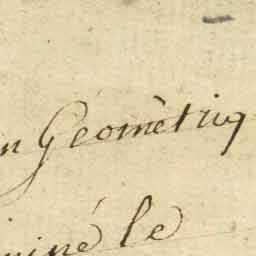 n Geométriq
iné le